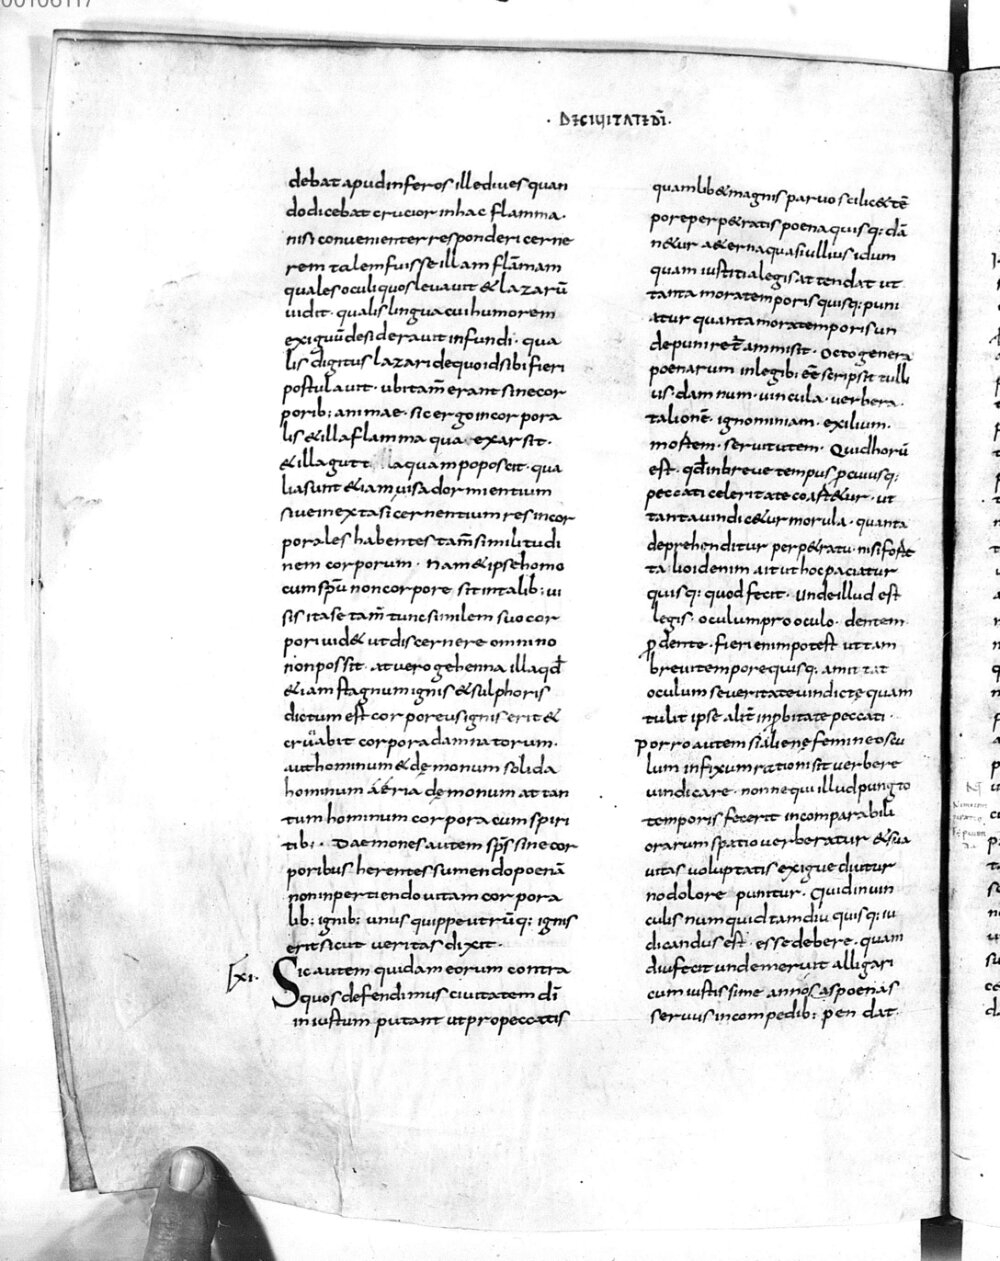 00106117
· DE CIVITATE DĪ ·
debat apud inferos ille dives quan
do dicebat crucior in hac flamma ·
nisi convenienter responderi cerne
rem talem fuisse illam flāmam
quales oculi quos levavit & lazarū
vidit · qualis lingua cui humorem
exiguū desideravit infundi · qua
lis digitus lazari de quo id sibi fieri
postulavit · ubi tam̄ erant sine cor
porib; animae · sic ergo incorpora
lis & illa flamma qua exarsit ·
& illa gutt laquam poposcit · qua
lia sunt &iam visa dormientium
sive in extasi cernentium res incor
porales habentes tam̄ similitudi
nem corporum · Nam & ipse homo
cum spū non corpore sit in talib; vi
sis ita se tam̄ tunc similem suo cor
pori vid& ut discernere omnino
non possit · at vero gehenna illa qđ
&iam stagnum ignis & sulphoris
dictum est corporeus ignis erit &
cruabit corpora damnatorum ·
aut hominum & dęmonum solida
hominum aeria dęmonum at tan
tum hominum corpora cum spiri
tib; · Daemones autem sp̄s sine cor
poribus herentes sumendo poenā
non inpertiendo vitam corpora
lib; ignib; unus quippe utrūq; ignis
erit sicut veritas dixit ·
XI · Sic autem quidam eorum contra
quos defendimus civitatem dī
iniustum putant ut pro peccatis
quamlib& magnis parvo scilic& tē
pore perp&ratis poena quisq; dā
n&ur a&erna quasi ullius id um
quam iustitia legis attendat ut
tanta mora temporis quisq; puni
atur quanta mora temporis un
de puniret̄ ammisit · Octo genera
poenarum in legib; eē scripsit tulli
us · damnum · vincula · verbera ·
talionē · ignominiam · exilium ·
mortem · servitutem · Quid horū
est · qđ in breve tempus ꝓ cuiusq;
peccati celeritate coart&ur · ut
tanta vindic&ur morula · quanta
deprehenditur perp&ratū · nisi forte
talio id enim ait ut hoc paciatur
quisq; quod fecit · Unde illud est
legis · oculum pro oculo · dentem
ꝓ dente · fieri enim potest ut tam
brevi tempore quisq; amittat
oculum severitate vindictę quam
tulit ipse alt̄i inꝓbitate peccati ·
Porro autem si alienę feminę oscu
lum infixum rationi sit verbere
vindicare · nonne qui illud puncto
temporis fecerit incomparabili
orarum spatio verberatur & sua
vitas voluptatis exigue diutur
no dolore punitur · Quid in vin
culis num quid tamdiu quisq; iu
dicandus est · esse debere · quam
diu fecit unde meruit alligari
cum iustissime annosas poenas
servus in compedib; pendat ·